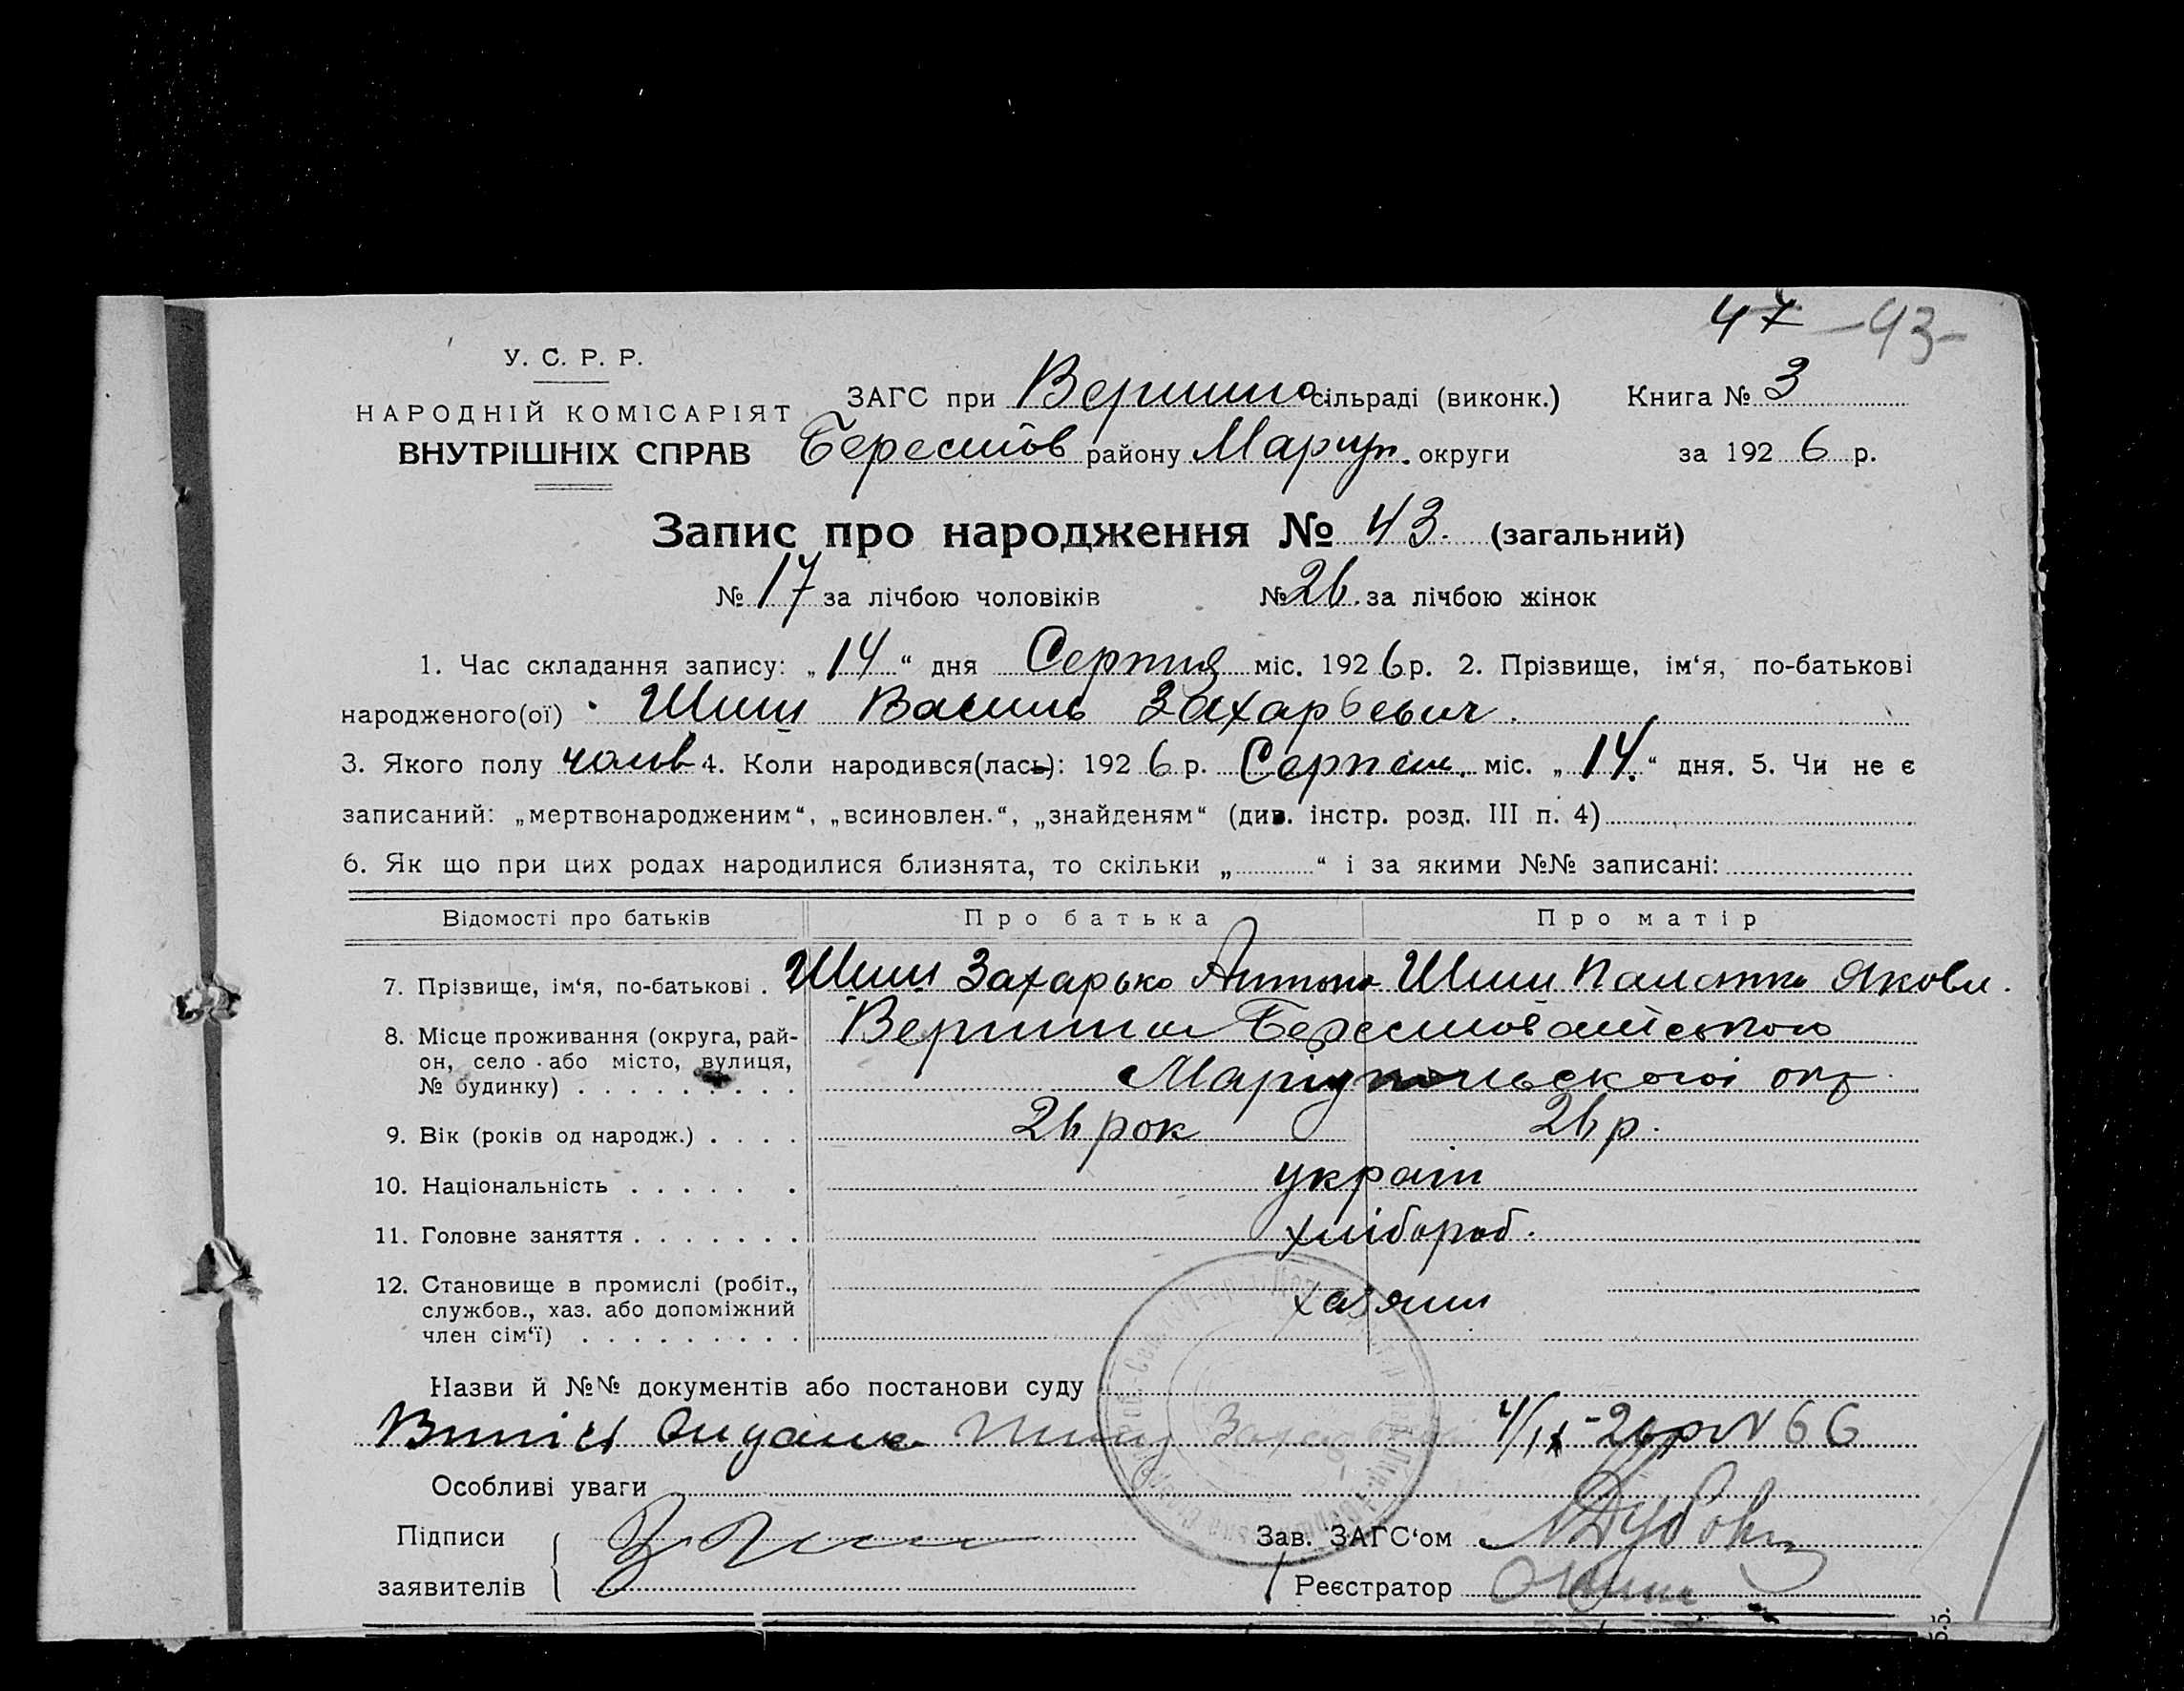 47 -43-
У. С. Р. Р.
НАРОДНІЙ КОМІСАРІЯТ
ВНУТРІШНІХ СПРАВ
ЗАГС при Вершино сільраді (виконк.) Книга № 3
Берестов району Маріуп. округи за 1926 р.
Запис про народження № 43. (загальний)
№ 17 за лічбою чоловіків № 26. за лічбою жінок
1. Час складання запису: „14“ дня Серпня міс. 1926 р. 2. Прізвище, ім‘я, по-батькові
народженого(ої) Шиш Василь Захарьевич.
3. Якого полу чолов 4. Коли народився(лась): 1926 р. Серпень. міс. „14.“ дня. 5. Чи не є
записаний: „мертвонародженим“, „всиновлен.“, „знайденям“ (див. інстр. розд. III п. 4)
6. Як що при цих родах народилися близнята, то скільки „ “ і за якими №№ записані:
Відомості про батьків Про батька Про матір
7. Прізвище, ім‘я, по-батькові . Шиш Захарько Антоно Шиш Яковл.
8. Місце проживання (округа, рай-
он, село або місто, вулиця,
№ будинку) . . . . . . . . . Вершина
Маріупольської окр
9. Вік (років од народж.) . . . . 26 рок 26 р.
10. Національність . . . . . . україн
11. Головне заняття . . . . . . . хлібороб.
12. Становище в промислі (робіт.,
службов., хаз. або допоміжний
член сім‘ї) . . . . . . . . . хазяин
Назви й №№ документів або постанови суду
4/IX-26 р N 66
Особливі уваги
Підписи
заявителів
Зав. ЗАГС‘ом
Реєстратор